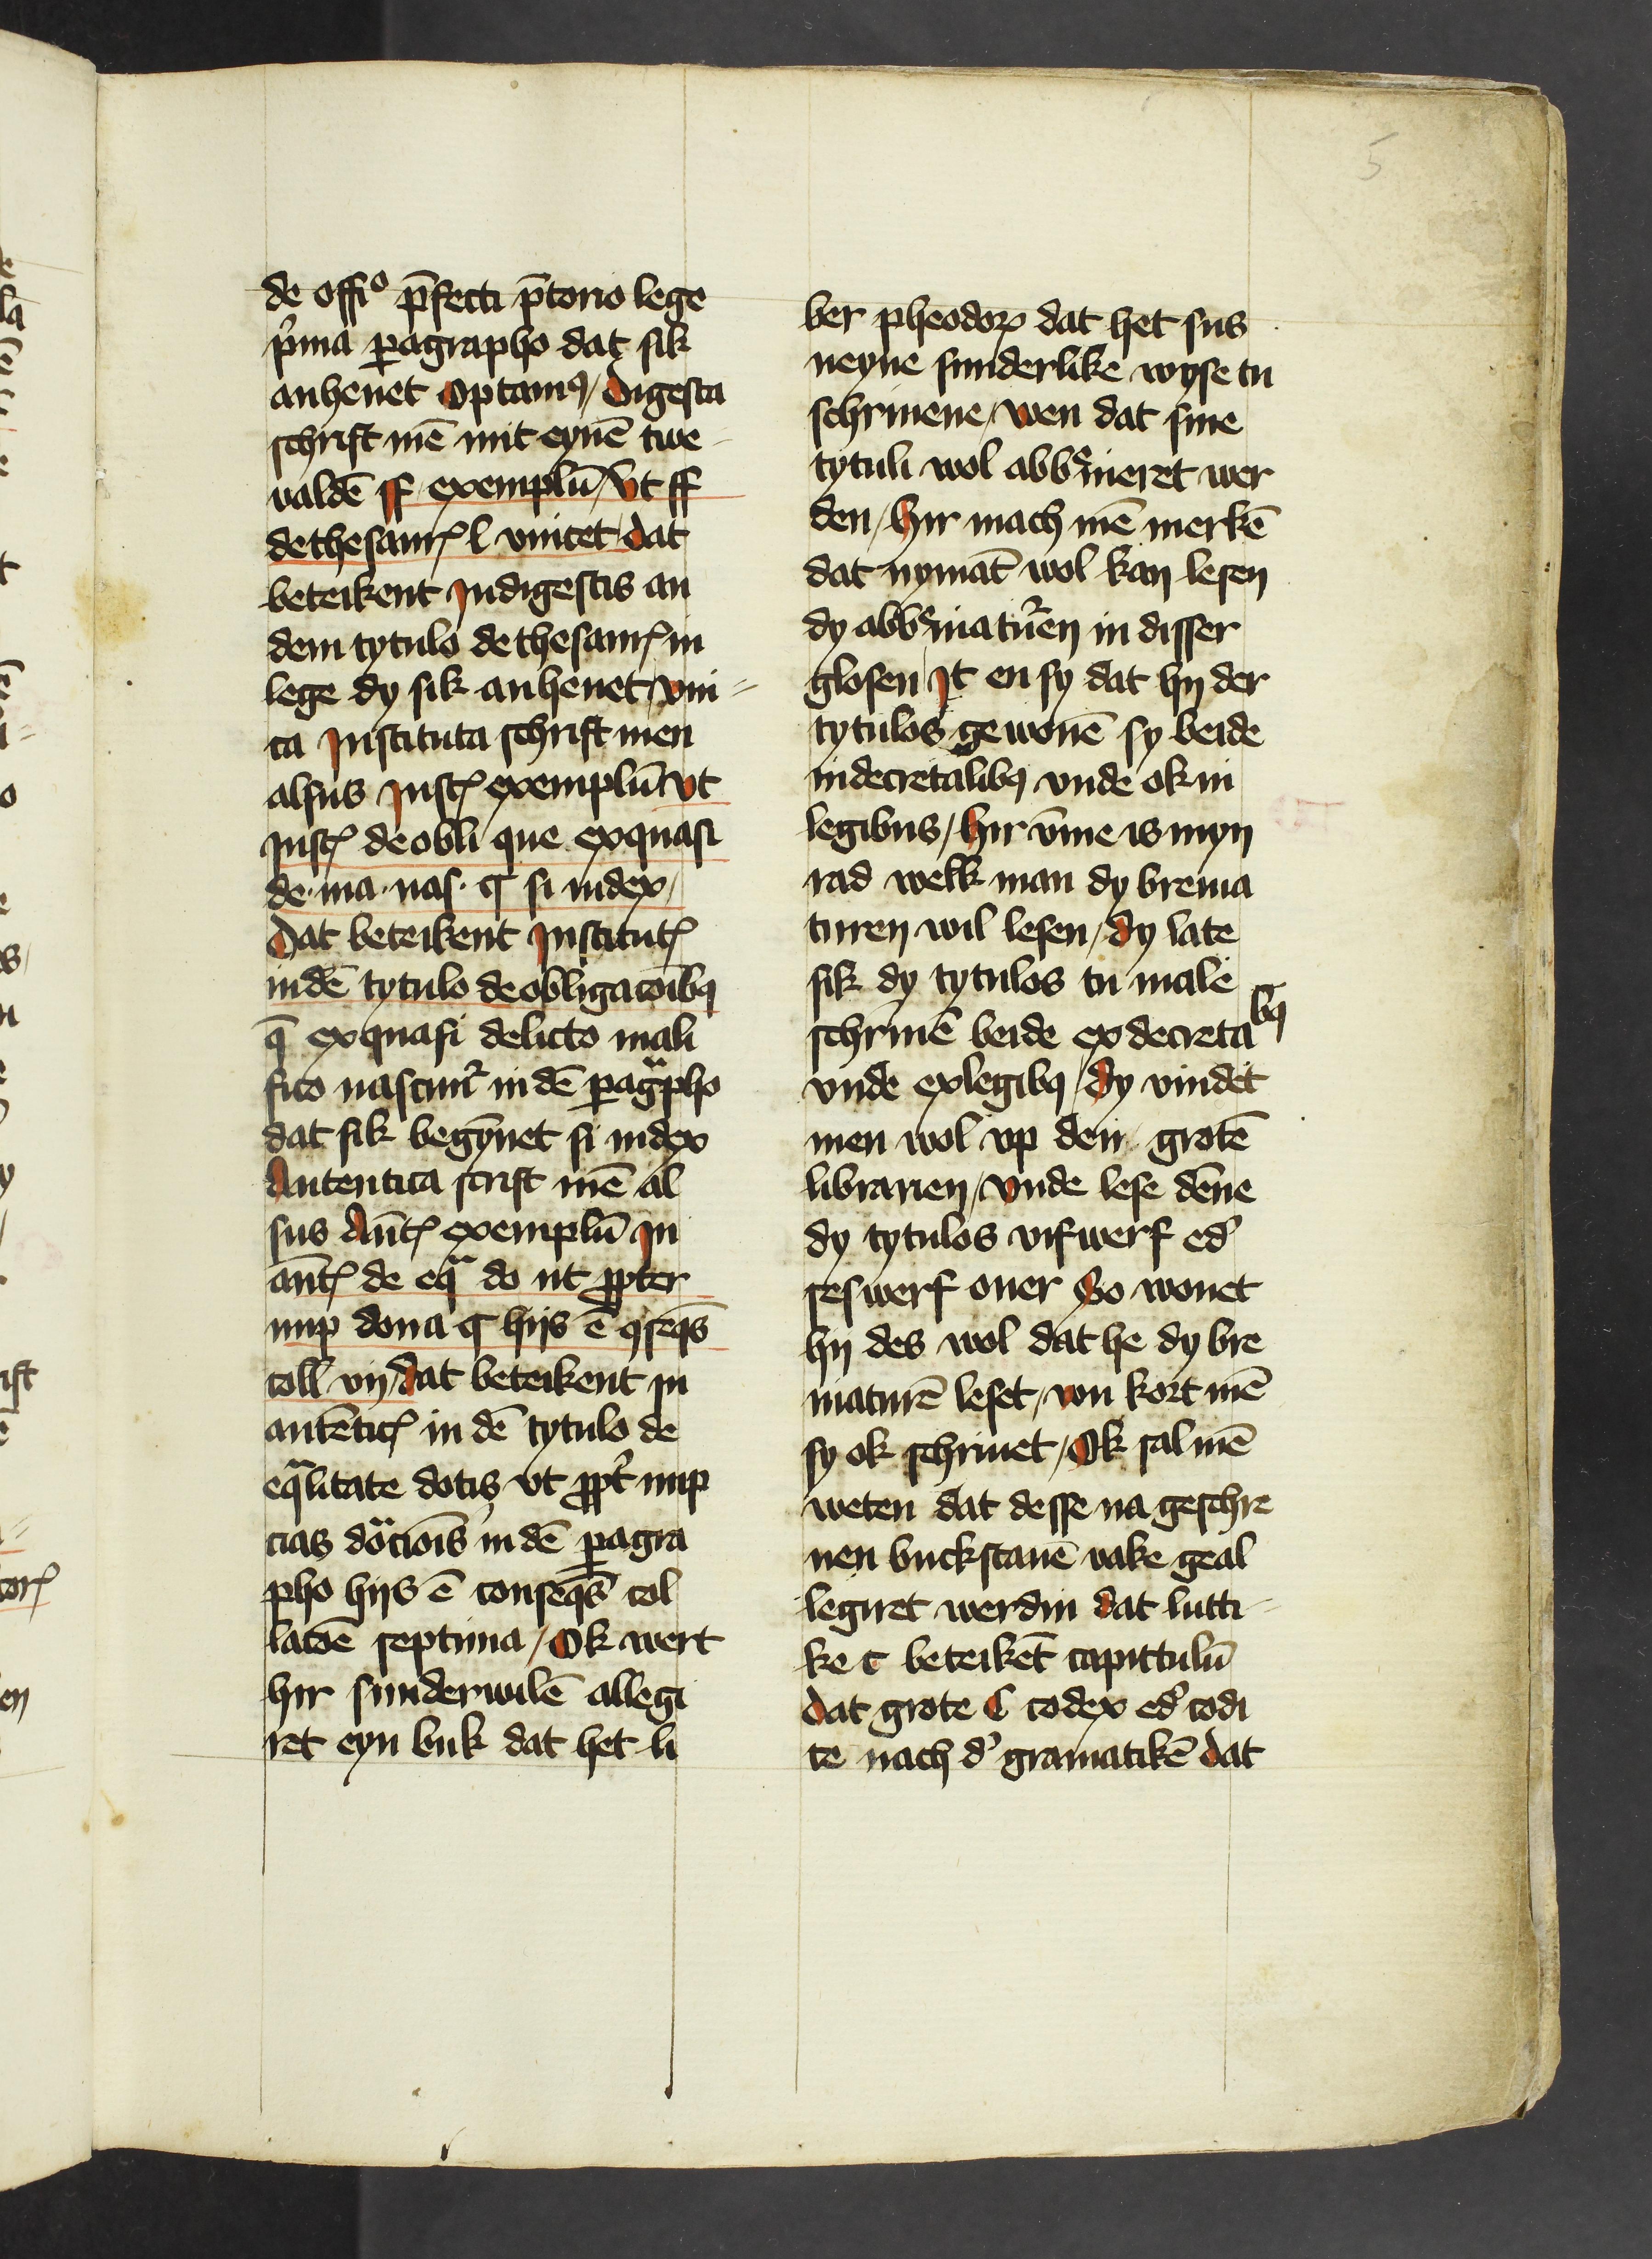 5
de offiº p̄fecti p̄torio lege
pͥma ꝑagrapho dat sik
anheuet Optamꝰ / Digesta
schrift mē mit eynē twe
ualdē ff exemplū / Vt ff
de thesaurꝭ l vnicet dat
beteikent Jndigestis an
dem tytulo de thesaurꝭ in
lege dy sik anheuet / vni=
ca Jnstituta schrift men
alsus Jnstꝭ exemplū vt
Jnstꝭ de obli que ex quasi
de · ma · nas · ¶ si iudex /
Dat beteikent Jnstitutꝭ
in dē tytulo de obligacōībꝫ
q̄ ex quasi delicto mali
fico nascunt᷑ in dē ꝑagͣpho
dat sik begȳnet si iudex
Autentica scrift mē al
sus Aūtꝭ exemplū Jn
aūtꝭ de eqͣ do ut ꝓpter
nup dona ¶ hijs ē ꝯseq̄s
coll vij / dat beteikent Jn
autēticꝭ in dē tytulo de
eqͣlitate dotis vt ꝓpt᷑ nup
cias dōͣciōis in dē ꝑagra
pho hijs ē conseq̄s col
lacōe septima / Ok wert
hir sunderwilē allegi
ret eyn buk dat het li
ber pheodoꝝ dat het sus
neyne sunderlike wyse tu
schriuene / wen dat sine
tytuli wol abbͤuieret wer
den / hir mach mē merkē
dat nymāt wol kan lesen
dy abbͤuiatu᷑en in disser
glosen Jt en sy dat hy der
tytulos gewonē sy beide
in decretalibꝫ vnde ok in
legibus / hir v̄me is myn
rad welk man dy breuia
turen wil lesen / dy late
sik dy tytulos tu male
schriuē beide ex decreta bꝫ
vnde ex legibꝫ / dy vindet
men wol vp den grotē
librarien / vnde lese dēne
dy tytulos vifwerf ed᷑
seswerf ouer So wonet
hy des wol dat he dy bre
uiaturē leset / von kort mē
sy ok schriuet / Ok sal mē
weten dat desse na geschre
uen buckstauē vake geal
legiret werdin dat lutti=
ke c beteikēt capittulū
dat grote C codex ed᷑ codi
te nach d᷑ gramatikē dat